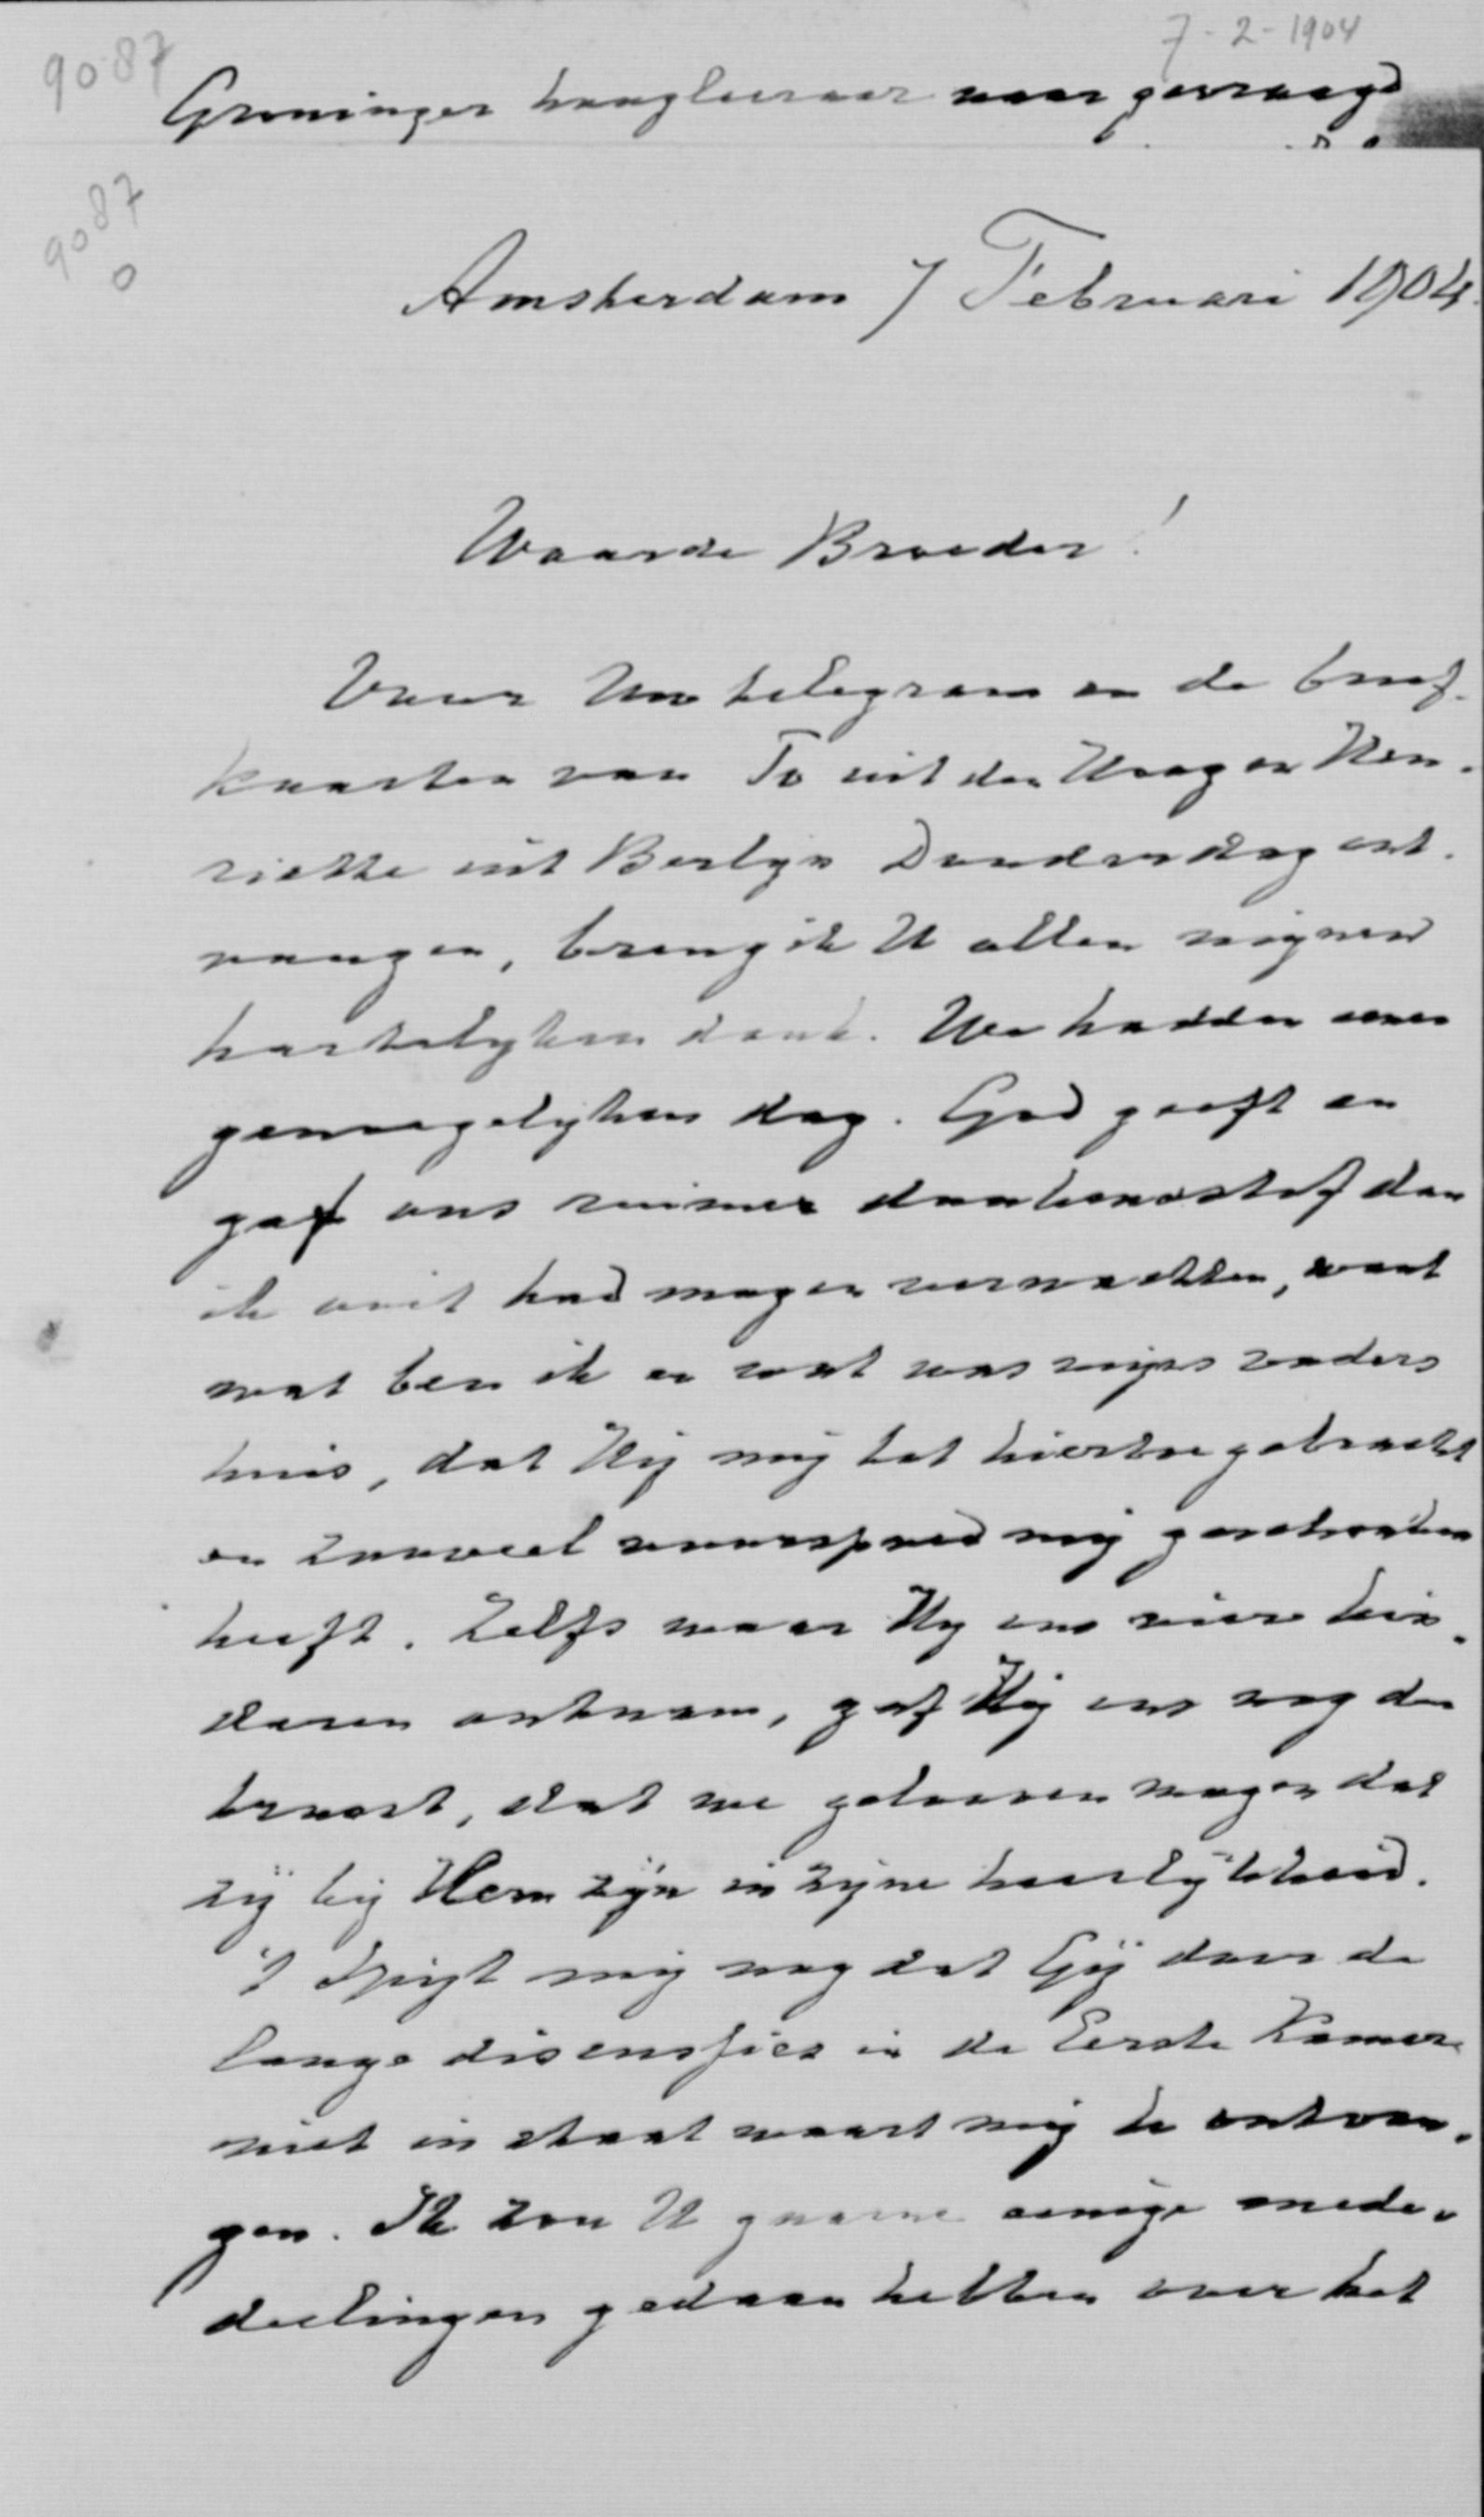 7-2-1904
9087
Groninger hoogleeraar naar gevraagd
9087
0
Amsterdam 7 Februari 1904.
Waarde Broeder!
Voor Uw telegram en de brief-
kaarten van To uit den Haag en Hen-
riette uit Berlijn Donderdag ont-
vangen, breng ik U allen mijnen
hartelijken dank. We hadden eenen
genoegelijken dag. God geeft en
gaf ons ruimer dankensstof dan
ik ooit had mogen verwachten, want
wat ben ik en wat was mijns vaders
huis, dat Hij mij tot hiertoe gebracht
en zooveel voorspoed mij geschonken
heeft. Zelfs waar Hij ons vier kin-
deren ontnam, gaf Hij ons nog den
troost, dat we gelooven mogen dat
zij bij Hem zijn in zijne heerlijkheid.
't Spijt mij nog dat Gij door de
lange discussies in de Eerste Kamer
niet in staat waart mij te ontvan-
gen. Ik zou U gaarne eenige mede-
deelingen gedaan hebben over het